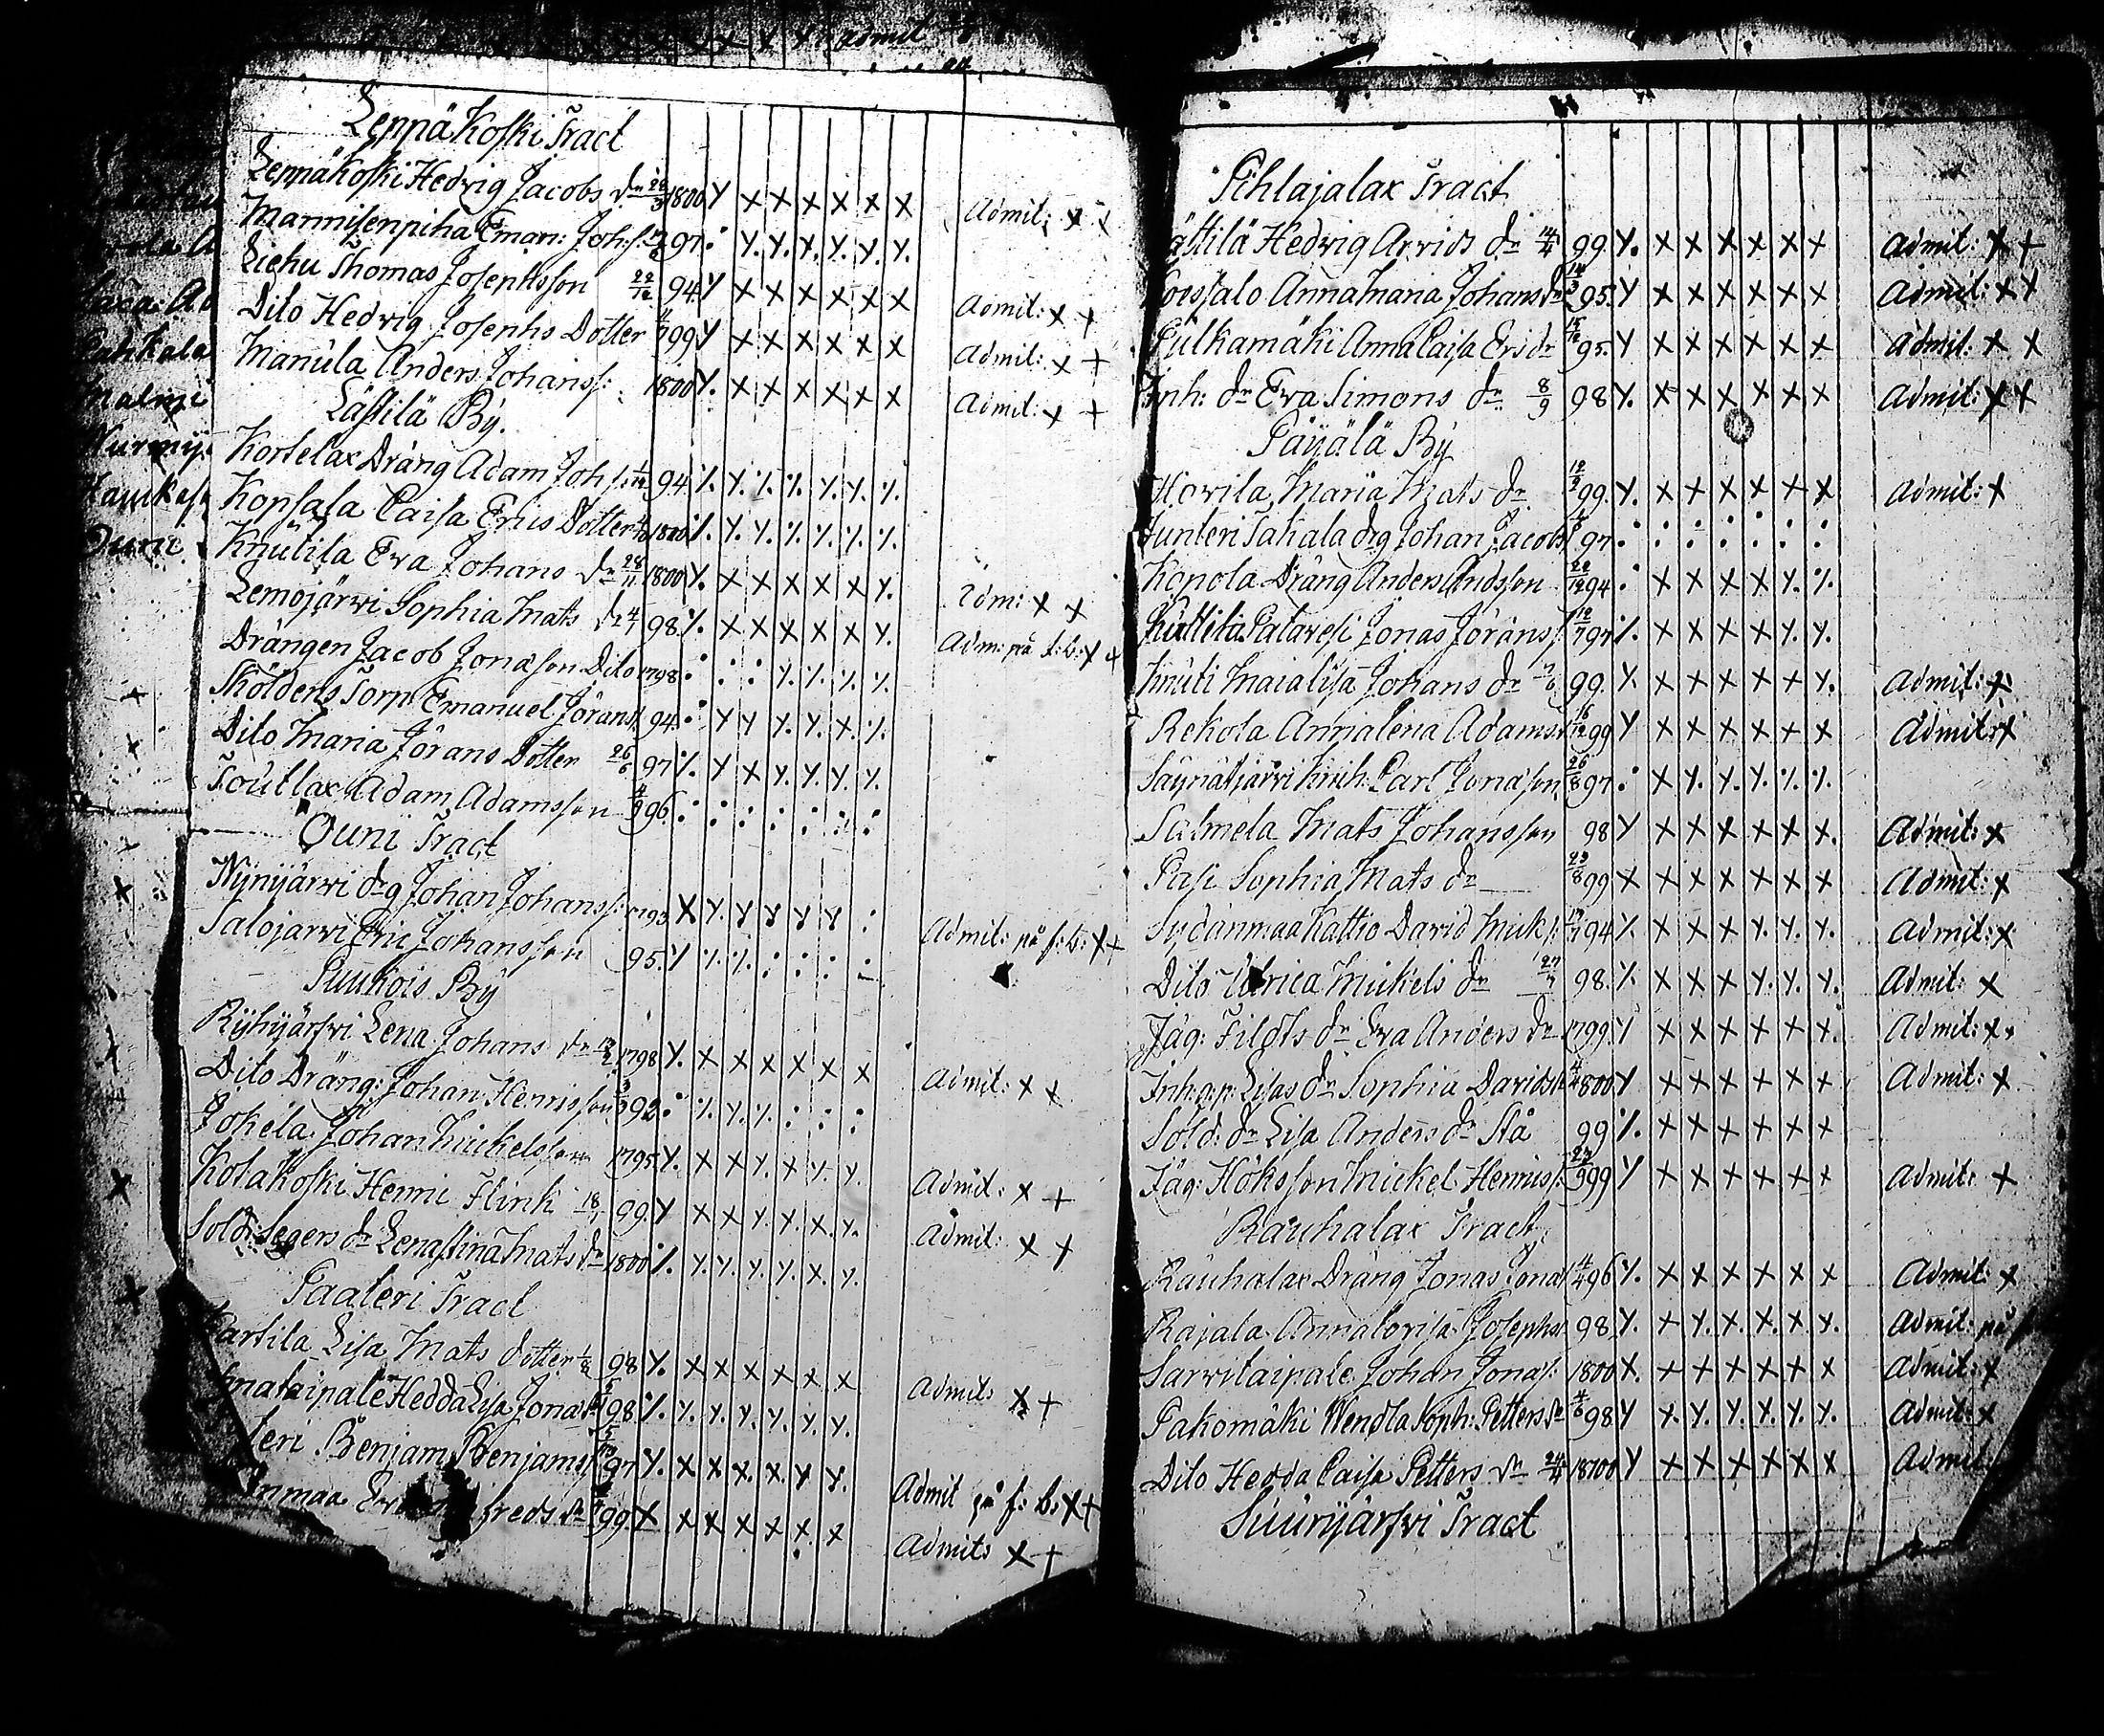 Admit
Leppäkoski Tract
Leppäkoski Hedvig Jacobs dr 1800 Y x x x x x x Admit: x x
Mannisenpiha Eman: Joh:s. 97 ⁒ Y. Y. Y. Y. Y. Y.
Liehu Thomas Josephsson 22/12 94 Y x x x x x x Admit: x +
Dito Hedvig Josephs Dotter 99 Y x x x x x x Admit: x +
Manula Anders Johanss: 1800 Y. x x x x x x Admit: x +
Lästilä By.
Kortelax Dräng Adam Joh 94 ⁒ Y. ⁒ ⁒ Y. Y. ⁒
Kopsala Caisa Erics Dotter 1800 ⁒ Y. Y. ⁒ ⁒ ⁒ ⁒
Knutila Eva Johans dr 28/11 1800 Y. x x x x x Y. Adm: x x
Lemojärvi Sophia Mats dr 98 ⁒ x x x x x Y. Adm: på f: b: x +
Drängen Jacob Jonasson Dito 1798 : : : Y. ⁒ ⁒ ⁒
Sköldens Torp Emanuel Jörans 94 : Y Y Y. Y. x. ⁒
Dito Maria Jörans Dotter 26/6 97 ⁒ Y x Y. Y. Y. Y.
Toutlax Adam Adamsson 96 : : : : : : :
Ouni Tract
Nynyärwi drg Johan Johanss: 1793 X Y. Y Y Y Y : Admit: på f: b: x +
Salojärwi Eric Johansson 95. Y ⁒ ⁒ : : : –
Puukois By
Ryhyärfvi Lena Johans dr 1798 Y. x x x x x x Admit: x x
Dito Dräng: Johan Henrisson 92 : ⁒ Y. ⁒ : : :
Jokela Johan Mickelsson 1795 Y. x x Y. x Y. Y. Admit: x +
Kotakoski Henric Flink 18/1 99 Y x x Y. Y. x Y. Admit: x +
Sold: Segers dr Lenastina Mats dr 1800 ⁒ Y. Y. Y. Y. x. Y.
Paateri Tract
Kartila Lisa Mats dotter 98 Y. x x x x x x Admit: x +
Hedda Lisa Jonas 98 ⁒ Y. Y. Y. Y. Y. Y.
Benjam Benjams 97 Y. x x x. x. Y Y. Admit på f: b: x +
99 X x x x x x. x Admit: x +
Pihlajalax Tract
Hedvig Arvids dr 99 Y. x x x x x x Admit: x +
Annamaria Johans dr 95 Y x x x x x x Admit: x x
Pulkamäki Anna Caisa Ers dr 95. Y x x x x x x Admit: x x
Inh: dr Eva Simons dr 8/9 98 Y. x x x x x x Admit: x +
Päyälä By
Hovila Maria Mats dr 99. Y. x x x x x x Admit: x
Junteri Takala drg Johan Jacobs 97 : : : : : : :
Konola Dräng Anders Andsson 22/12 94 : x x x x Y. ⁒
Jonas Jörans 97 ⁒ x x x x Y. Y.
Knuti Maialisa Johans dr 99. Y. x x x x x Y. Admit: x
Rekola Annalena Adams 16/12 99 Y x x x x x x Admit: x
Säynätjärwi Inh: Carl Jonasson 26/8 97 : x Y. Y. Y. ⁒ ⁒
Salmela Mats Johansson 98 Y x x x x x x. Admit: x
Pasi Sophia Mats dr 23/8 99 x x x x x x x Admit: x
Sydänmaa Kattio David Mick: 94 ⁒ x x x Y. Y. Y. Admit: x
Dito Ulrica Mickels dr 98. ⁒ x x x Y. Y. Y. Admit: x
Jäg: Fildts dr Eva Anders dr 1799 Y x x x x x x. Admit: x x
Inh. Lisas dr Sophia Davids 1800 Y x x x x x x Admit: x
Sold: dr Lisa Anders dr Stå 99 ⁒ x x x x x x
Jäg: Höksson Mickel Henriss: 99 Y x x x x x x Admit: x
Rauhalax Tract
Rauhalax Dräng Jonas Jonas 96 Y. x x x x x x Admit: x
Rajala Annalovisa Josephs 98 Y. x Y. x. x. x. Y. Admit: på
Sarvitaipale Johan Jonas: 1800 X. x x x x x x Admit: x
Pakomäki Wendla Soph: Petters dr 98 Y Y. Y. Y. Y. Y. Y. Admit: x
Dito Hedda Caisa Petters dr 1800 Y x x x x x x Admit
Suuryärfvi Tract